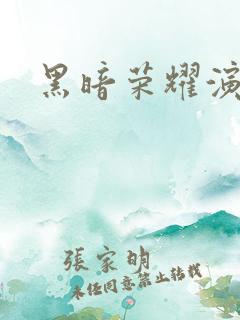 黑暗荣耀演
張家明
未经同意禁止转载